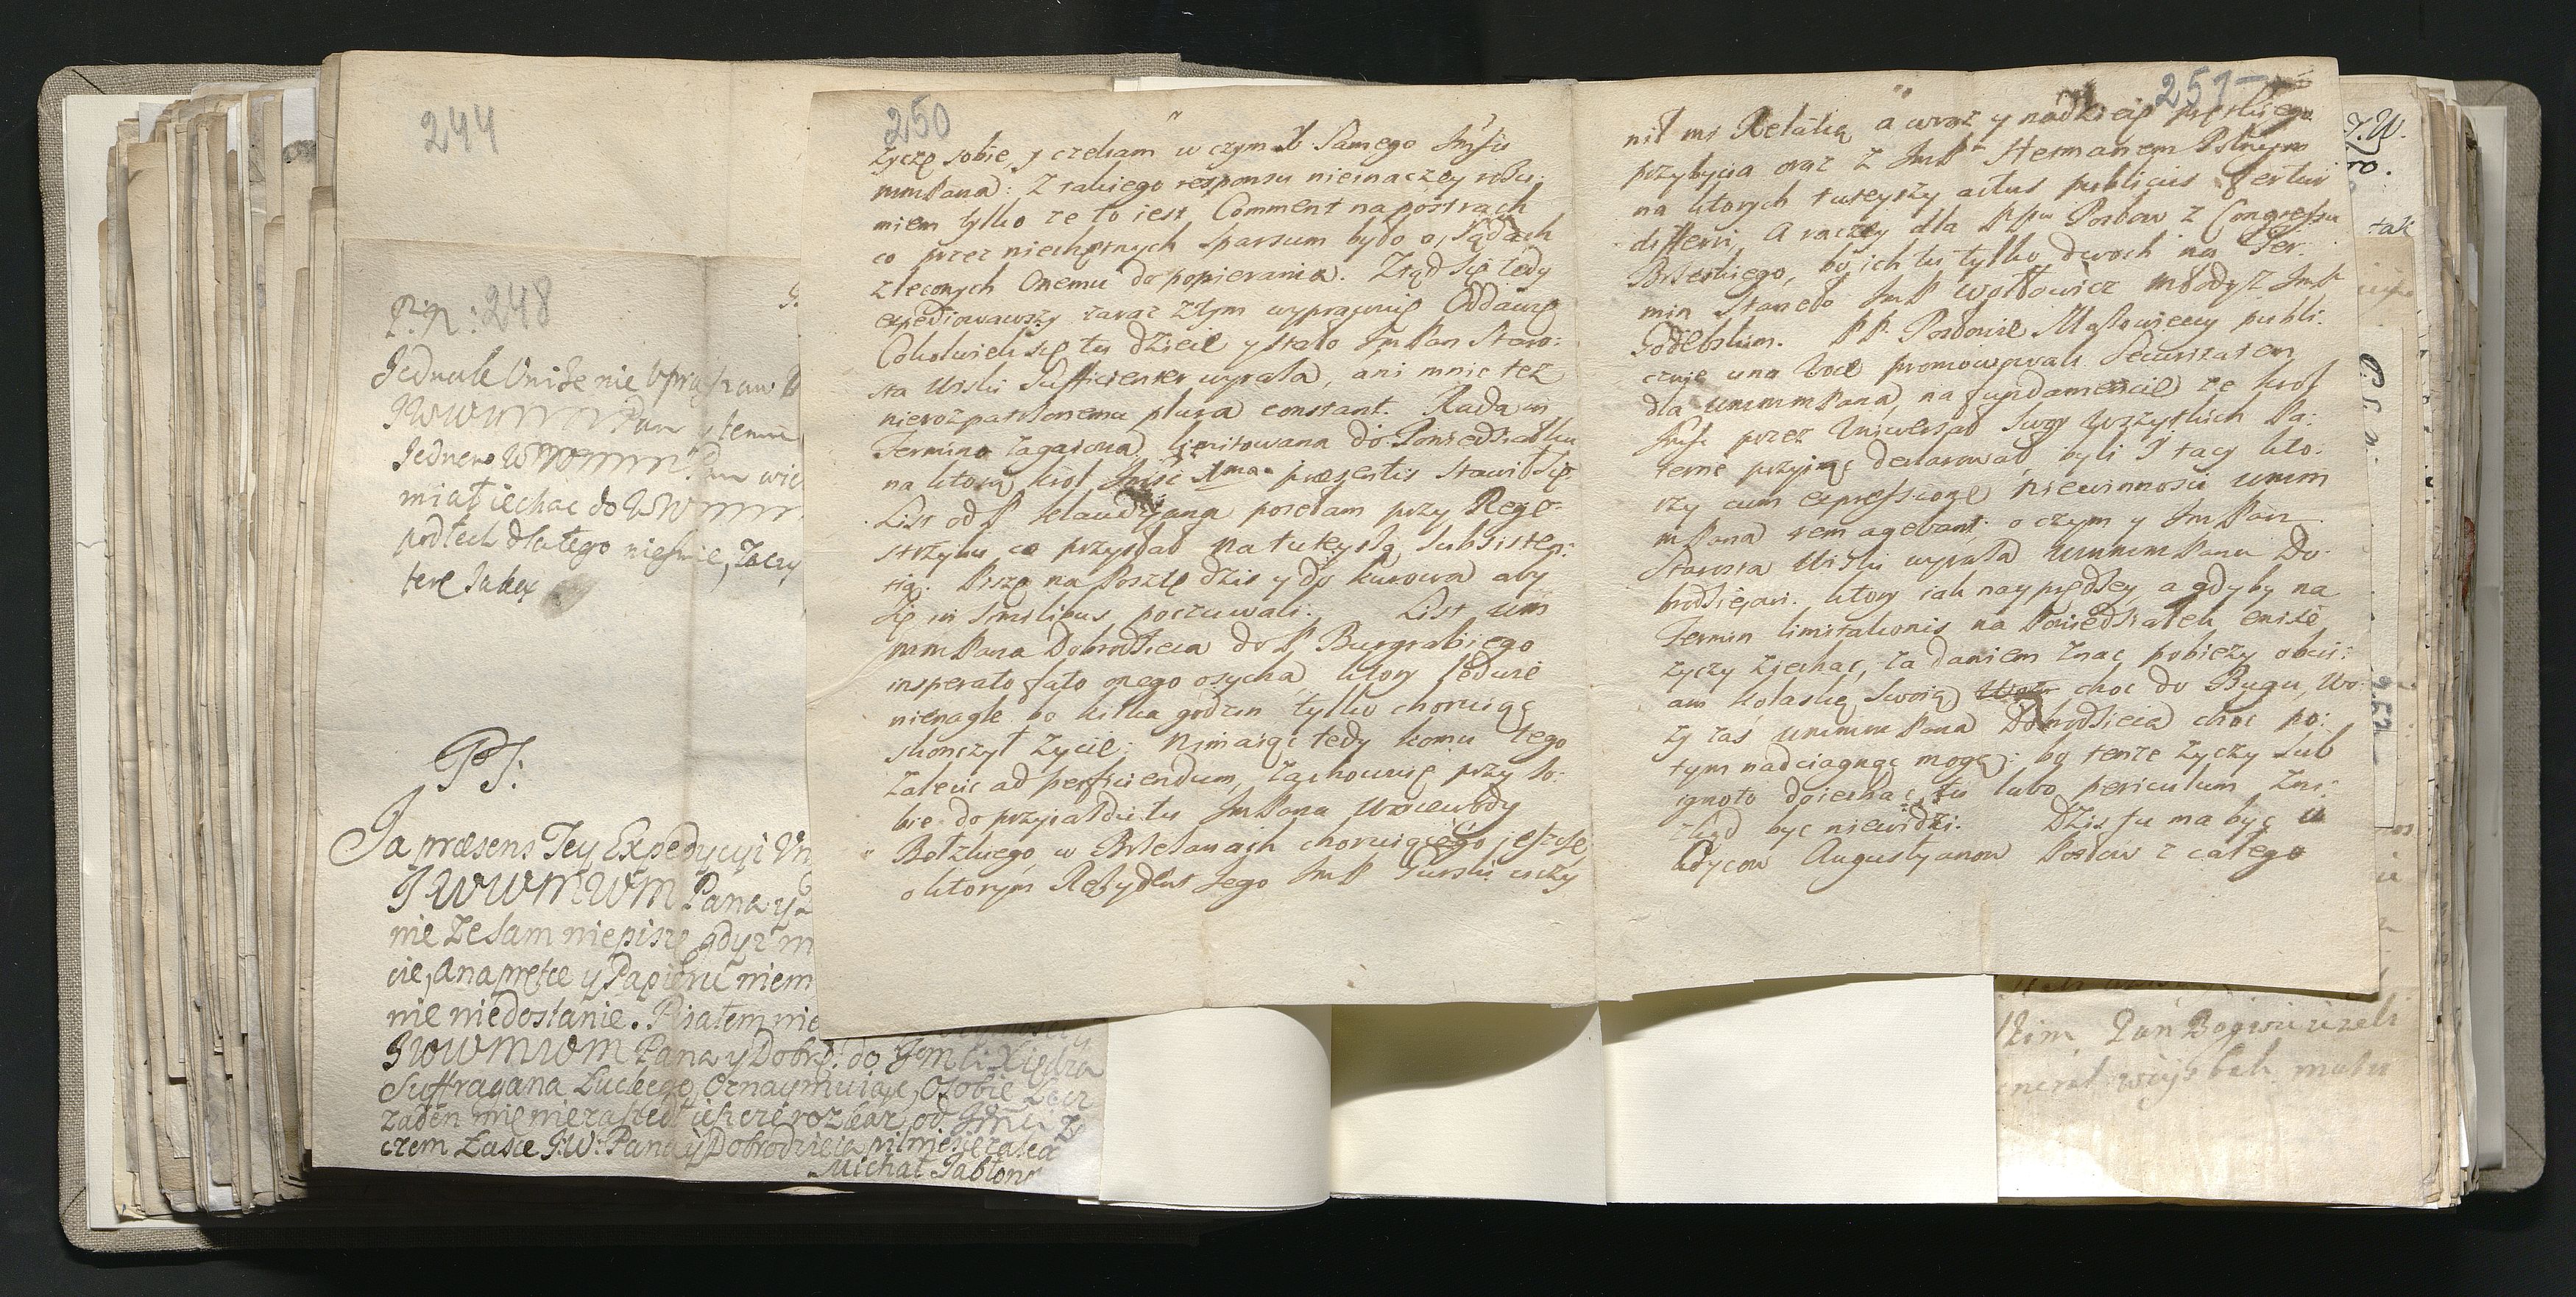 244
P: N: 248
Jednak Uniże nie
JWWMM Pan y temu
Jednero WMM Pan
miał iechac do WWMM
podłech dlatego nieśmie, Zaczy
tere
PS:
Ja præsens Tey Expedycyi Vn
JWWMWM Pana y
nie Ze sam niepiszę gdyż m
cie, Anapręte y Papieru niem
nie niedostanie. Pisałem nie
JWWMWM Pana y Dobrd: do Jgmści Xiędza
Suffragana Łuckego, Oznaymuiąc, Osobie Lecz
żaden mię niezaszedł ieszcze rozkaz od Jgmści Z
czem Łasce J:W: Pana y Dobrodzieia pilnie się zalca
Michał Jabłon
250
życzę sobie, y czekam w czym X Samego Jmści
mmPana: Z takiego responsu nieinaczey rozu:
miem tylko ze to iest Comment na postrach
co przez niechętnych sparsum było o Sądach
zleconych Onemu do popierania. Ztąd się tedy
expediowawszy zaraz ztym wyprawuię Oddawcę
Cokolwiek się tu dzieie y stało Jm Pan Staro:
sta Urski Sufficienter wyraża, ani mnie też
nierozpatrzonemu plura constant. Rada in
Termino zagaiona, limitowana do Poniedziałku
na którą Krol Jmść 1ma præsentis stawił się
List od P Klaudyana posełam przy Rege:
strzyku co przysłał na tuteyszą Subsisten:
tią. Piszę na Posztę dzis y do Kurowa aby
się in similibus poczuwali. List um
mmPana Dobrodzieia do P Burgrabiego
insperato fato onego osycha, ktory
nienagle bo kilka godzin tylko choruiąc
skonczył życie: Nimaiąc tedy komu tego
Zalecic ad perficiendum, Zachowuię przy so:
bie do przyiazdu tu JmPana Woiewody
Bełzkiego w Brzezanach choruiącego jeszcze
o ktorym Rezydent Jego Jm P Gurski uczy
251
nił mi Relatią a wraz y nadzieię prętkiego
przybycia oraz z JmPm Hetmanem Polnym
na ktorych tuteyszy actus publicus fertur
differri, A raczey dla PPw Posłow z Congressu
Brzeskiego, bo ich tu tylko dwoch na Ter:
min staneło Jm P Wołłowicz młody z Jm P
Godebskim. PP. Posłowie Mazowieccy publi:
cznie una Voce promowowali Securitatem
dla ummmPana, na fundamencie ze Krol
Jmść przez Uniwersał swoy wszystkich Pa:
terne przyiąc deklarował, byli I tacy kto:
rzy cum expressione niewinnosci umm
mPana rem agebant: o czym y Jm Pan
Starosta Urski wyraża ummmPanu Do:
brodzieiowi. ktory iak nayprędzey a gdyby na
Termin limitationis na Poniedziałek
życzy ziechac, za daniem znac pobieży obcii:
am kolaską swoią choc do Bugu, Wo:
zy zas ummmPana Dobrodzieia choc po:
tym nadciągnąc mogą: bo tenze życzy sub
ignoto doiechac tu lubo periculum Zni:
kąd byc niewidzi. Dzis tu ma byc u
Xdzow Augustyanow Posłow z całego
J. W.
tak
252
Pan Bog